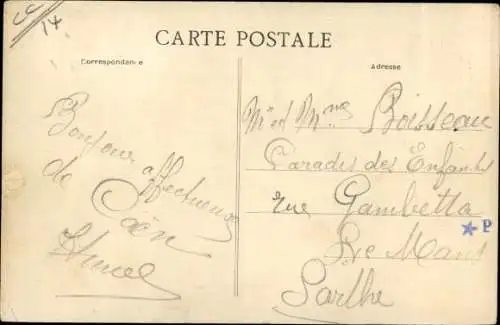 CARTE POSTALE
Correspondance
Adresse
Bonjour affectueux
de Caen
Mr et Mme Boisseau
Paradis des Enfants
rue Gambetta
Le Mans
Sarthe
P